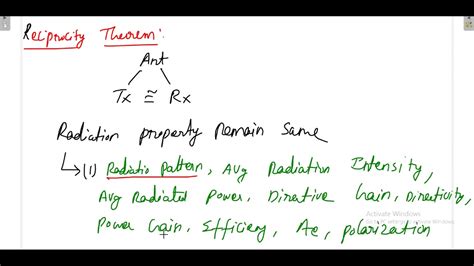 Reciprocity Theorem:
Ant
Tx ≅ Rx
Radiation property Remain Same
↳(1) Radiatio Pattern, Avg Radiation Intensity,
Avg Radiated Power, Directive Gain, Directicity,
Power Gain, Efficiecy, Ae, polarization
Activate Windows